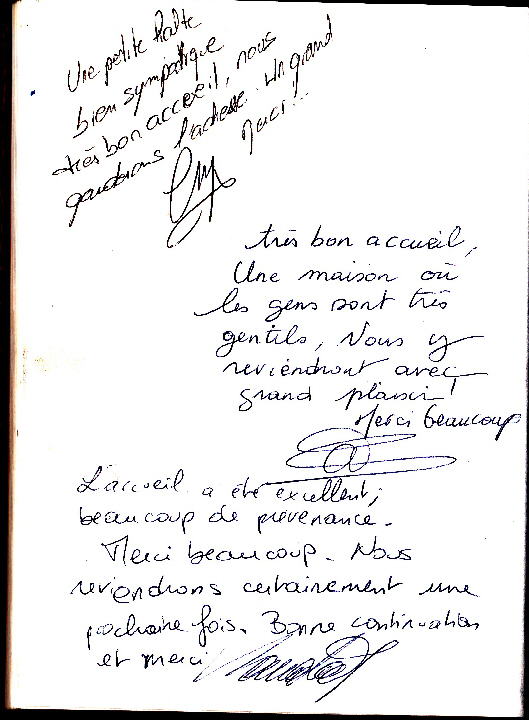 Une petite halte
bien sympatique
très bon accueil, nous
garderons l'adresse. Un grand
Merci!
très bon accueil,
Une maison où
les gens sont très
gentils, Nous y
reviendront avec
grand plaisir!
Merci beaucoup
L'accueil a été excellent,
beaucoup de prévenance.
Merci beaucoup. Nous
reviendrons certainement une
prochaine fois. Bonne continuation
et merci